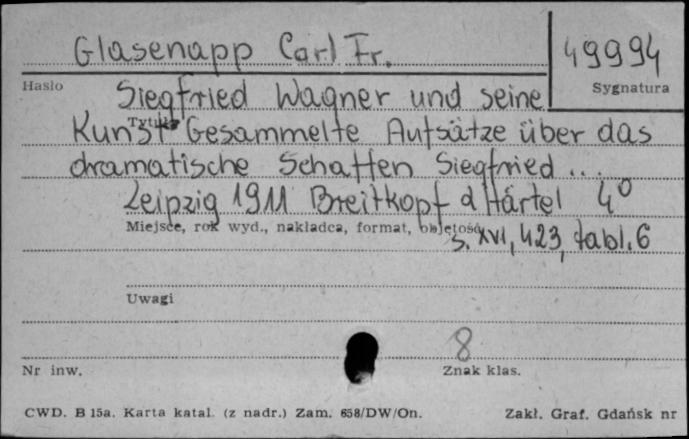 Glasenapp Carl Fr.
49994
Hasło
Sygnatura
Siegfried Wagner und seine
Tytuł
Kunst Gesammelte Aufsätze über das
dramatische Schaffen Siegfried ...
Leipzig 1911 Breitkopf d Härtel 4°
Miejsce, rok wyd., nakładca, format, objętość
s. XVI, 423, tabl. 6
Uwagi
8
Nr inw.
Znak klas.
CWD. B 15a. Karta katal. (z nadr.) Zam. 658/DW/On.
Zakł. Graf. Gdańsk nr